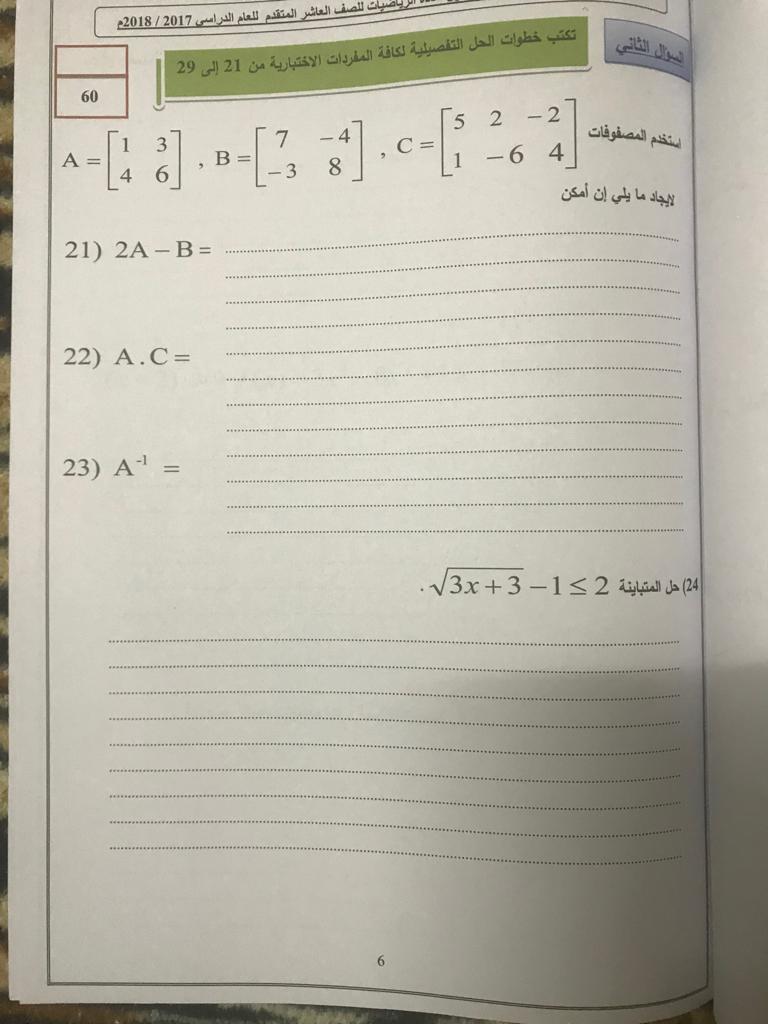 الرياضيات للصف العاشر المتقدم للعام الدراسي 2017 / 2018م
السؤال الثاني
تكتب خطوات الحل التفصيلية لكافة المفردات الاختبارية من 21 إلى 29
60
استخدم المصفوفات A = [1 3; 4 6] , B = [7 −4; −3 8] , C = [5 2 −2; 1 −6 4]
لايجاد ما يلي إن أمكن
21) 2A − B =
22) A . C =
23) A⁻¹ =
24) حل المتباينة √(3x + 3) − 1 ≤ 2 .
6